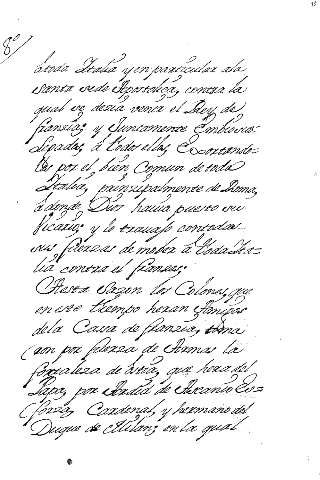 8º
átoda Italia y en particular ala
santa sede Apostolica, contra la
qual se dezia venia el Rey de
francia; y Juntamente Embio su
legado, á todos ellos Exortando-
los por el bien Comun de toda
Italia, principalmente de Roma,
á donde Dios havia puesto su
Vicario; y lo travajo con todas
sus fuerzas de mober á toda Ita-
lia contra el frances;
Aesta sazon los Coloneses, que
en este tiempo heran Amigos
dela Casa de francia, toma
ron por fuerza de Armas la
fortaleza de ostia, que hera del
Papa, por Ardid de Ascanio Es-
forzia, Cardenal, y hermano del
Duque de Milan; en la qual